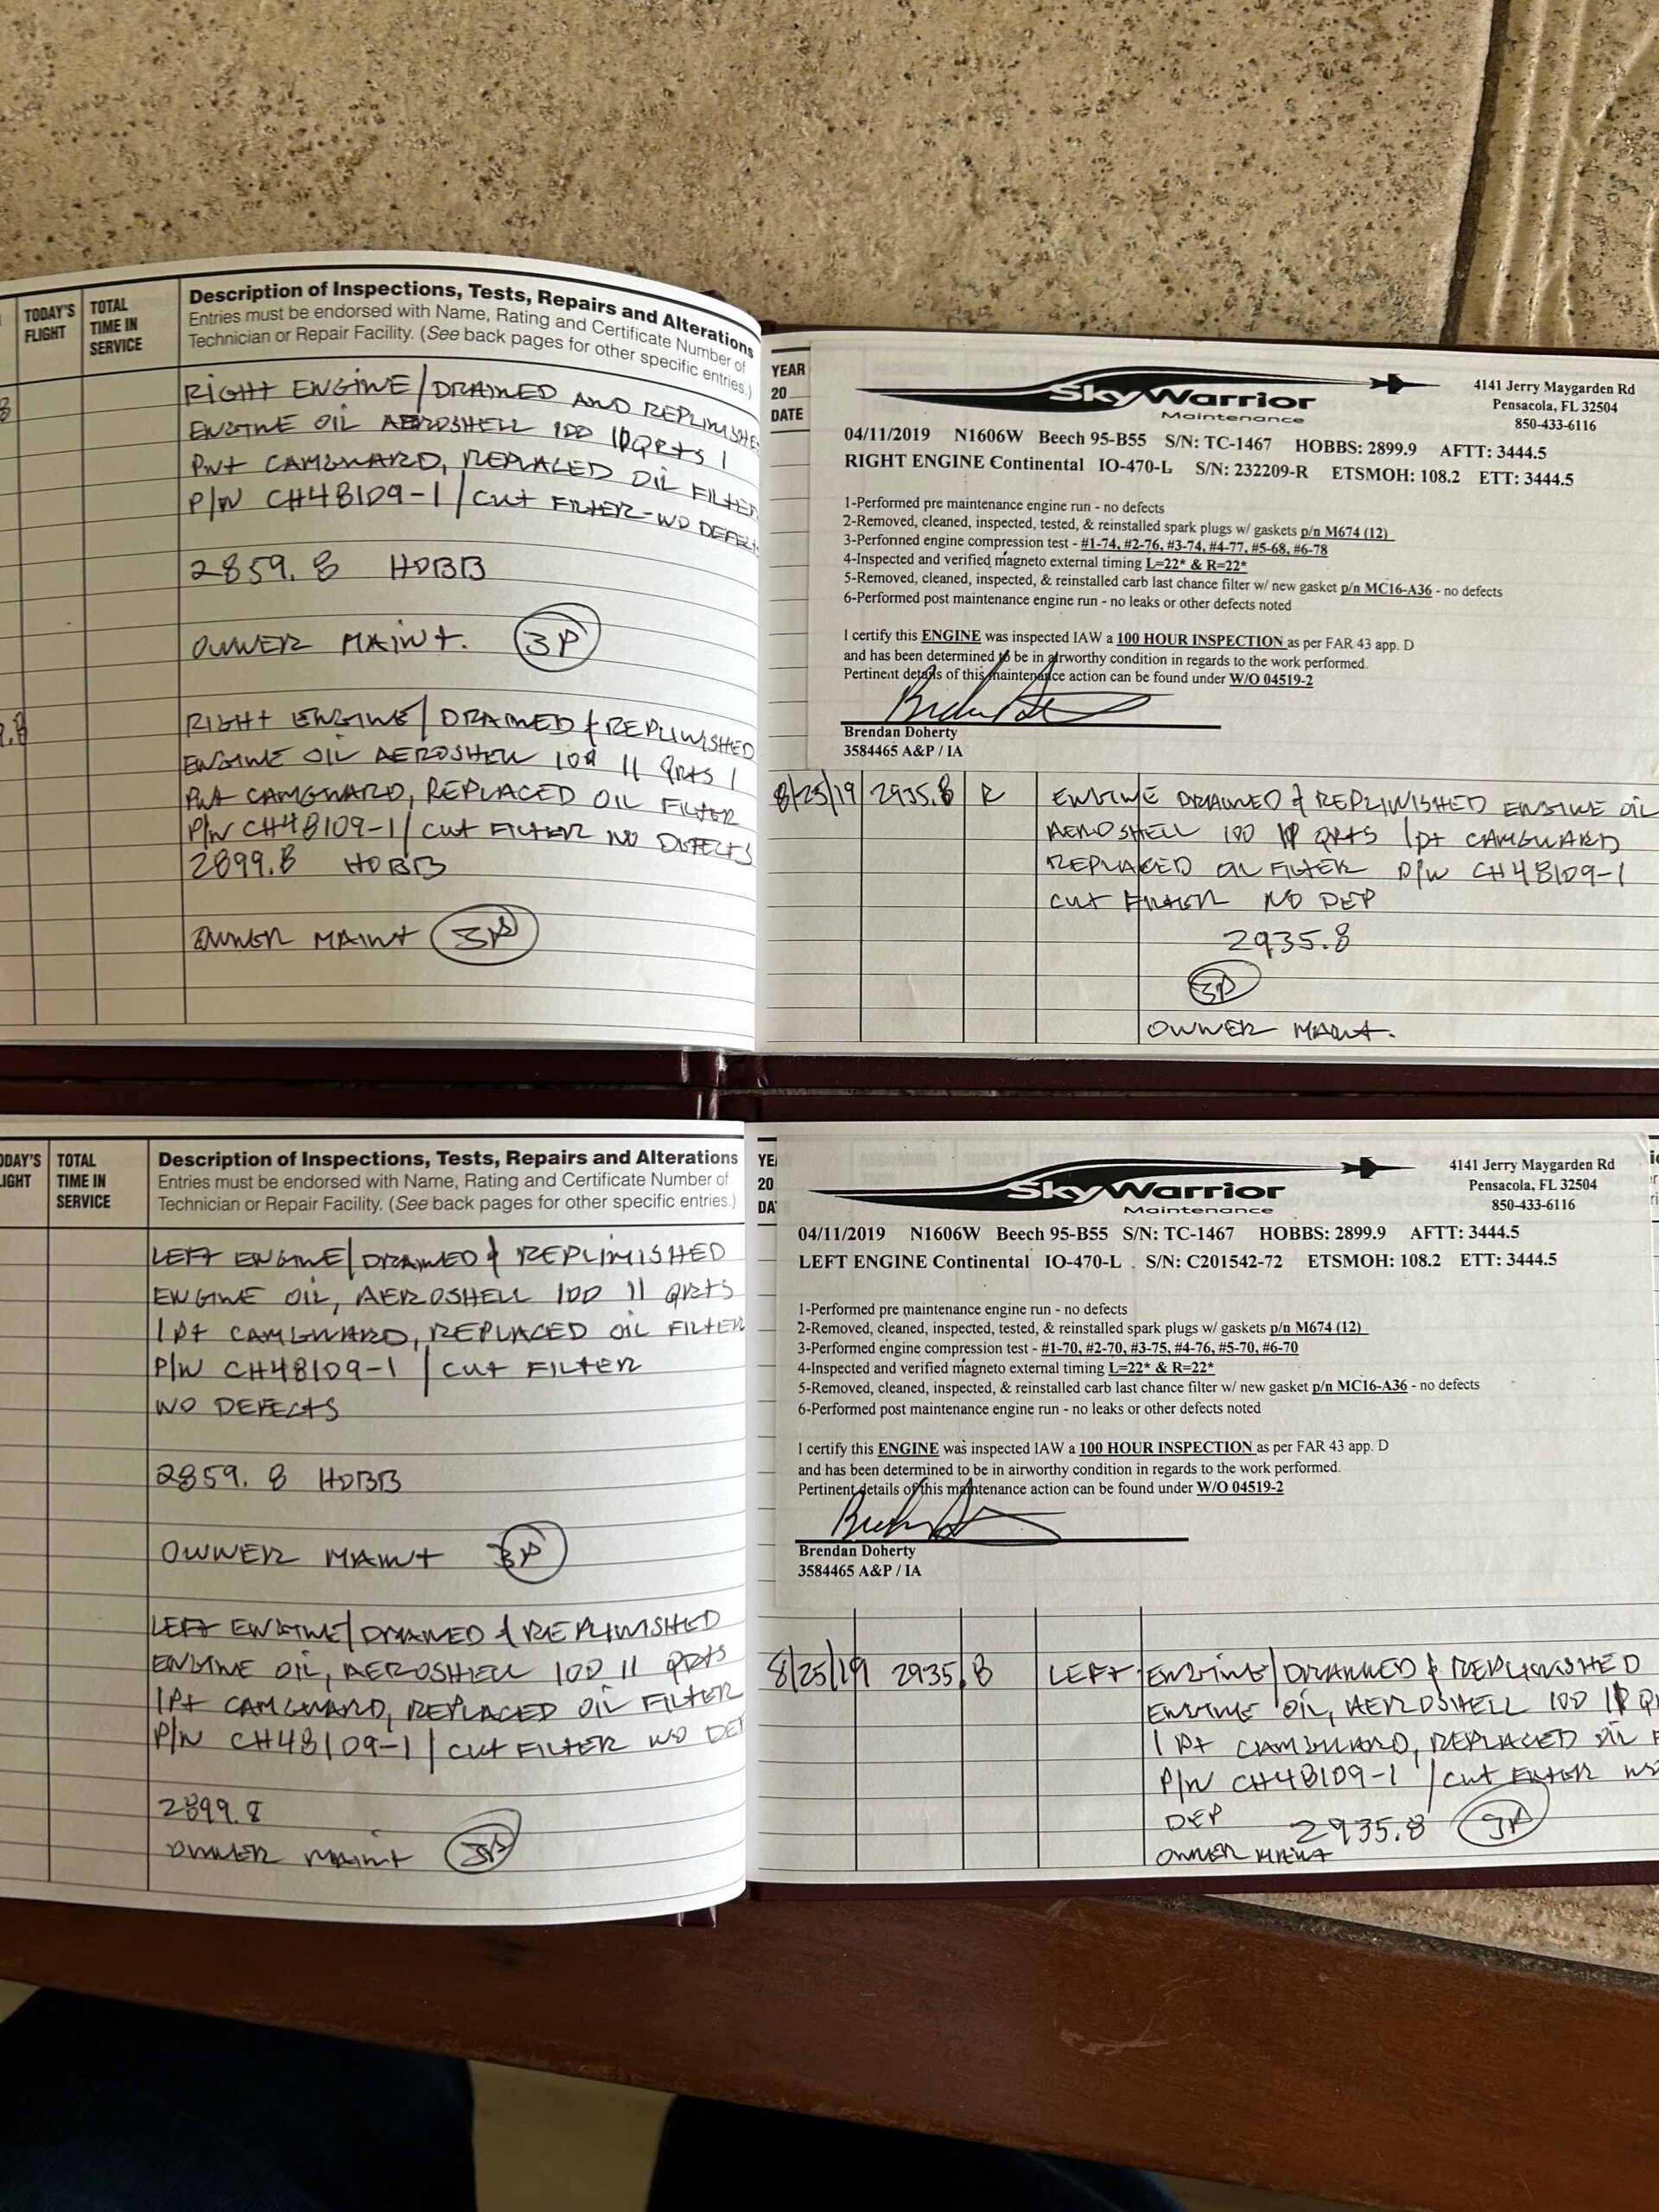 TODAY'S FLIGHT
TOTAL TIME IN SERVICE
Description of Inspections, Tests, Repairs and Alterations
Entries must be endorsed with Name, Rating and Certificate Number of
Technician or Repair Facility. (See back pages for other specific entries.)
RIGHT ENGINE/DRAINED AND REPLINISHE
ENGINE OIL AEROSHELL 100 11 QRTS 1
PNT CAMGUARD, REPLACED OIL FILTER
P/N CH48109-1 / CUT FILTER-NO DEFECTS
2859.8 HOBB
OWNER MAINT.
RIGHT ENGINE/DRAINED & REPLINISHED
ENGINE OIL AEROSHELL 100 11 QRTS 1
PNT CAMGUARD, REPLACED OIL FILTER
P/N CH48109-1/ CUT FILTER NO DEFECTS
2899.8 HOBB
OWNER MAINT
YEAR
20
DATE
SkyWarrior
Maintenance
4141 Jerry Maygarden Rd
Pensacola, FL 32504
850-433-6116
04/11/2019 N1606W Beech 95-B55 S/N: TC-1467 HOBBS: 2899.9 AFTT: 3444.5
RIGHT ENGINE Continental IO-470-L S/N: 232209-R ETSMOH: 108.2 ETT: 3444.5
1-Performed pre maintenance engine run - no defects
2-Removed, cleaned, inspected, tested, & reinstalled spark plugs w/ gaskets p/n M674 (12)
3-Performed engine compression test - #1-74, #2-76, #3-74, #4-77, #5-68, #6-78
4-Inspected and verified magneto external timing L=22* & R=22*
5-Removed, cleaned, inspected, & reinstalled carb last chance filter w/ new gasket p/n MC16-A36 - no defects
6-Performed post maintenance engine run - no leaks or other defects noted
I certify this ENGINE was inspected IAW a 100 HOUR INSPECTION as per FAR 43 app. D
and has been determined to be in airworthy condition in regards to the work performed.
Pertinent details of this maintenance action can be found under W/O 04519-2
Brendan Doherty
3584465 A&P / IA
8/25/19 2935.8 R ENGINE DRAINED & REPLINISHED ENGINE OIL
AEROSHELL 100 QRTS 1PT CAMGUARD
REPLACED OIL FILTER P/N CH48109-1
CUT FILTER NO DEP
2935.8
OWNER MAINT.
ODAY'S
LIGHT
TOTAL TIME IN SERVICE
Description of Inspections, Tests, Repairs and Alterations
Entries must be endorsed with Name, Rating and Certificate Number of
Technician or Repair Facility. (See back pages for other specific entries.)
LEFT ENGINE/DRAINED & REPLINISHED
ENGINE OIL, AEROSHELL 100 11 QRTS
1 PT CAMGUARD, REPLACED OIL FILTER
P/N CH48109-1 / CUT FILTER
NO DEFECTS
2859.8 HOBB
OWNER MAINT
LEFT ENGINE/DRAINED & REPLINISHED
ENGINE OIL, AEROSHELL 100 11 QRTS
1PT CAMGUARD, REPLACED OIL FILTER
P/N CH48109-1 / CUT FILTER NO DEF
2899.8
OWNER MAINT
YE
20
DA
SkyWarrior
Maintenance
4141 Jerry Maygarden Rd
Pensacola, FL 32504
850-433-6116
04/11/2019 N1606W Beech 95-B55 S/N: TC-1467 HOBBS: 2899.9 AFTT: 3444.5
LEFT ENGINE Continental IO-470-L S/N: C201542-72 ETSMOH: 108.2 ETT: 3444.5
1-Performed pre maintenance engine run - no defects
2-Removed, cleaned, inspected, tested, & reinstalled spark plugs w/ gaskets p/n M674 (12)
3-Performed engine compression test - #1-70, #2-70, #3-75, #4-76, #5-70, #6-70
4-Inspected and verified magneto external timing L=22* & R=22*
5-Removed, cleaned, inspected, & reinstalled carb last chance filter w/ new gasket p/n MC16-A36 - no defects
6-Performed post maintenance engine run - no leaks or other defects noted
I certify this ENGINE was inspected IAW a 100 HOUR INSPECTION as per FAR 43 app. D
and has been determined to be in airworthy condition in regards to the work performed.
Pertinent details of this maintenance action can be found under W/O 04519-2
Brendan Doherty
3584465 A&P / IA
8/25/19 2935.8 LEFT ENGINE/DRAINED & REPLINISHED
ENGINE OIL, AEROSHELL 100
1 PT CAMGUARD, REPLACED OIL
P/N CH48109-1 / CUT FILTER NO
DEP 2935.8
OWNER MAINT